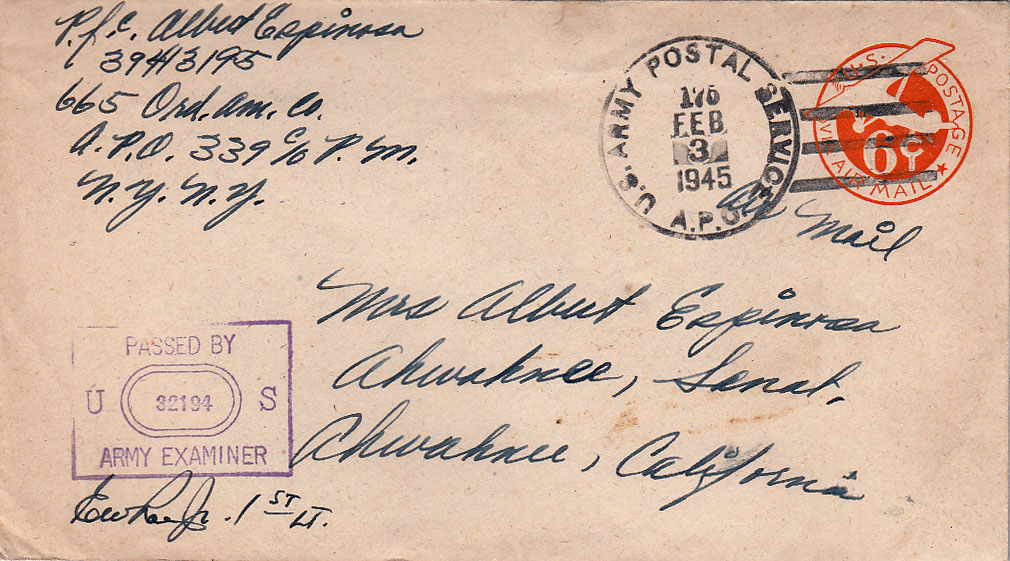 P.f.c. Albert Espinosa
39413195
665 Ord. Am. Co.
A.P.O. 339 c/o P.M.
N.Y. N.Y.
U.S. ARMY POSTAL SERVICE
A.P.O.
176
FEB
3
1945
U.S. POSTAGE
6¢
VIA AIR MAIL
Air Mail
Mrs Albert Espinosa
Ahwahnee, Sanat.
Ahwahnee, California
PASSED BY
U 32194 S
ARMY EXAMINER
1ST LT.